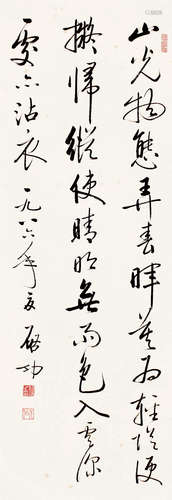 山光物態弄春暉莫為輕陰便
擬歸縱使晴明無雨色入雲深
處亦沾衣 一九八六年夏 啟功